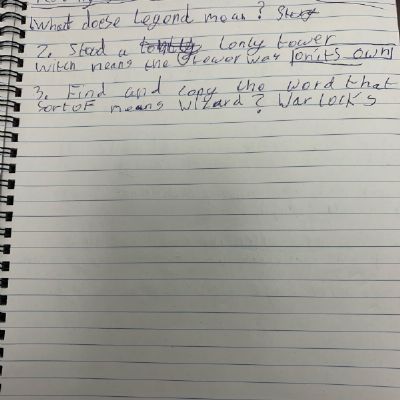 1. What doese legend mean? Story
2. Stood a lonly tower
witch means the tower was on its own
3. Find and copy the word that
sort of means wizard? Warlock's